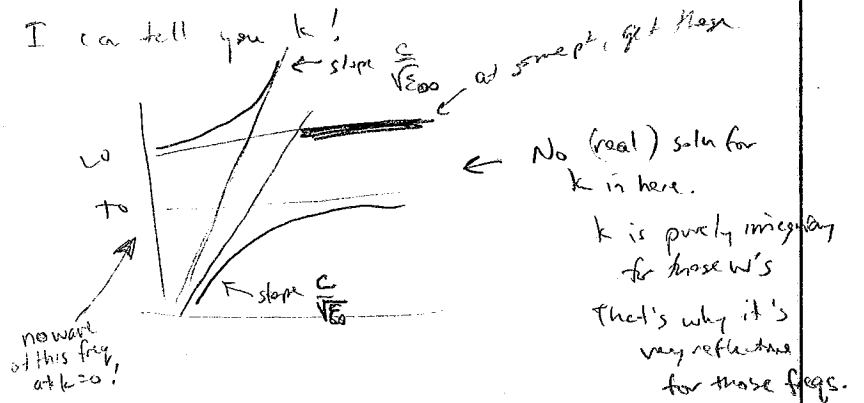 I can tell you k!
← slope c/√ε∞
at some pt, get these
LO
TO
← No (real) soln for
k in here.
k is purely imaginary
for those ω's
That's why it's
very reflective
for those freqs.
← slope c/√ε0
no wave
at this freq
at k=0!